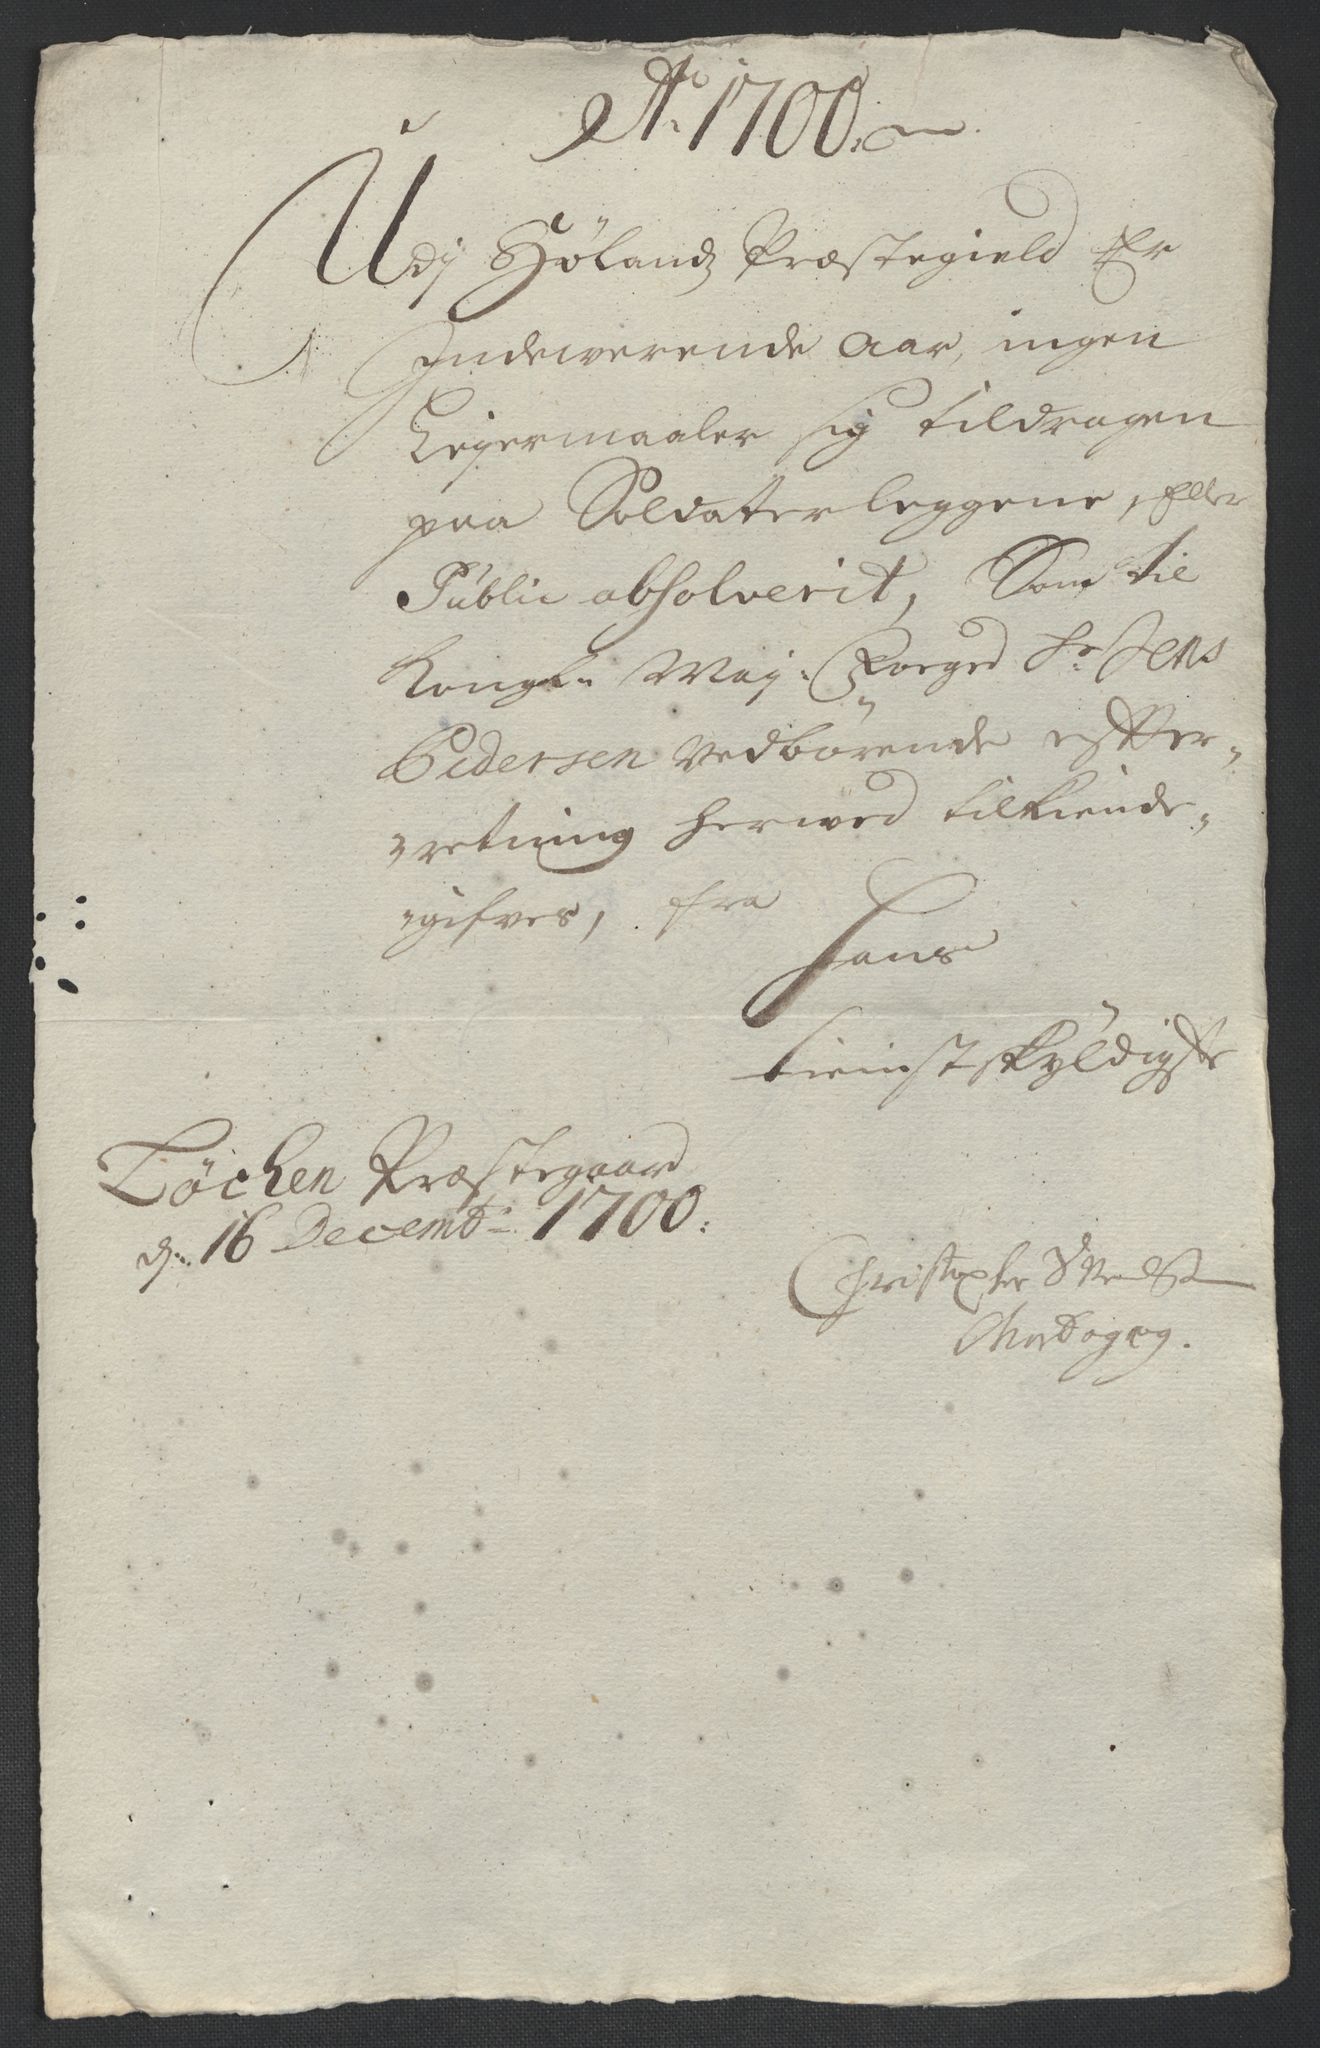 Ao. 1700.
Udj Hølandz Præstegield Er
Indeverende Aar, ingen
Leÿermaaler sig tildragen
paa Soldaterleggene, Eller
Public absolverit, Som til
Kongl. Maÿ: Foeged Sr. Jens
Pedersen Vedbørende efter-
retning herwed tilkiende-
gifves, fra
Hans
tienistskÿldigste
Løchen Præstegaard
d. 16 Decembr. 1700.
Christopher